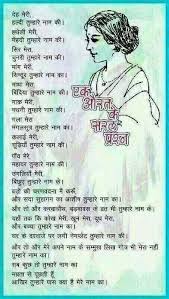 देह मेरी,
हल्दी तुम्हारे नाम की।
हथेली मेरी,
मेहंदी तुम्हारे नाम की।
सिर मेरा,
चुनरी तुम्हारे नाम की।
मांग मेरी,
सिन्दूर तुम्हारे नाम का।
माथा मेरा,
बिंदिया तुम्हारे नाम की।
नाक मेरी,
नथनी तुम्हारे नाम की।
गला मेरा,
मंगलसूत्र तुम्हारे नाम का।
कलाई मेरी,
चूड़ियाँ तुम्हारे नाम की।
पाँव मेरे,
महावर तुम्हारे नाम की।
उंगलियाँ मेरी,
बिछुए तुम्हारे नाम के।
बड़ों की चरण-वंदना मैं करूँ,
और सदा सुहागन का आशीष तुम्हारे नाम का।
और तो और करवाचौथ, बड़मावस के व्रत भी तुम्हारे नाम के।
यहाँ तक कि कोख मेरी, खून मेरा, दूध मेरा,
और बच्चा तुम्हारे नाम का।
घर के दरवाज़े पर लगी नेमप्लेट तुम्हारे नाम की।
और तो और मेरे अपने नाम के सम्मुख लिखा गोत्र भी मेरा नहीं
तुम्हारे नाम का।
सब कुछ तो तुम्हारे नाम का
आखिर तुम्हारे पास क्या है मेरे नाम का?
एक
औरत
के
सरल
प्रश्न